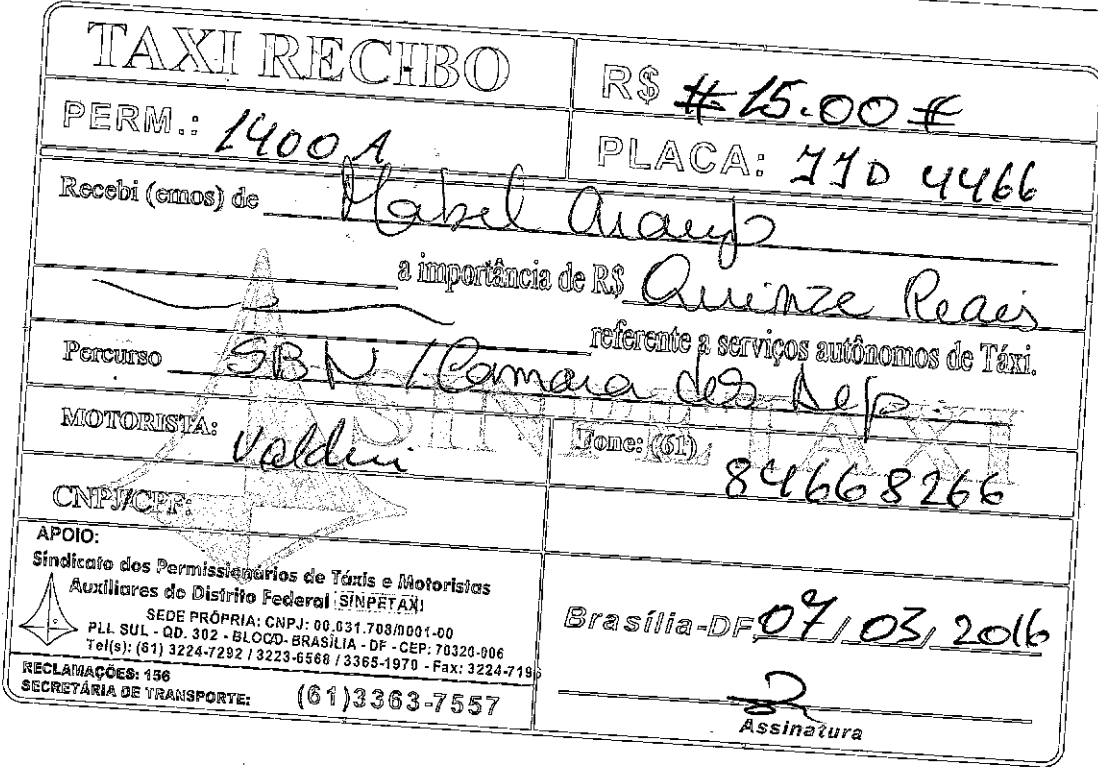 TAXI RECIBO
R$ # 15.00 #
PERM.: 1400 A
PLACA: JJD 4466
Recebi (emos) de Mabel Araujo
a importância de R$ Quinze Reais
referente a serviços autônomos de Táxi.
Percurso SBN / Camara dos Dep.
SINPETAXI
MOTORISTA: Valdeci
Fone: (61) 84668266
CNPJ/CPF:
APOIO:
Sindicato dos Permissionários de Táxis e Motoristas
Auxiliares do Distrito Federal SINPETAXI
SEDE PRÓPRIA: CNPJ: 00.031.708/0001-00
PLL SUL - QD. 302 - BLOCO- BRASÍLIA - DF - CEP: 70320-006
Tel(s): (61) 3224-7292 / 3223-6568 / 3365-1970 - Fax: 3224-7196
RECLAMAÇÕES: 156
SECRETÁRIA DE TRANSPORTE: (61)3363-7557
Brasília-DF 07/03/2016
Assinatura